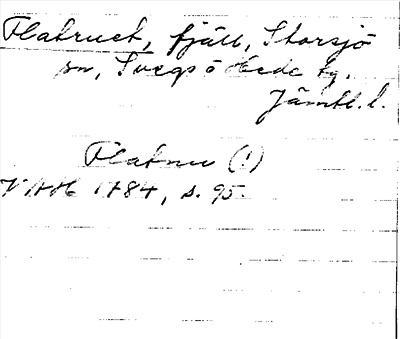 Flatruet, fjäll, Storsjö
sn, Svegs o Hede tg.
Jämtl. l.
Flatru (!)
VAH 1784, s. 95.